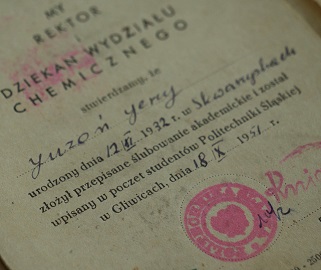 MY
REKTOR
i
DZIEKAN WYDZIAŁU
CHEMICZNEGO
stwierdzamy, że
Juzoń Jerzy
urodzony dnia 12 III 1932 r. w
złożył przepisane ślubowanie akademickie i został
wpisany w poczet studentów Politechniki Śląskiej
w Gliwicach, dnia 18 X 1951 r.